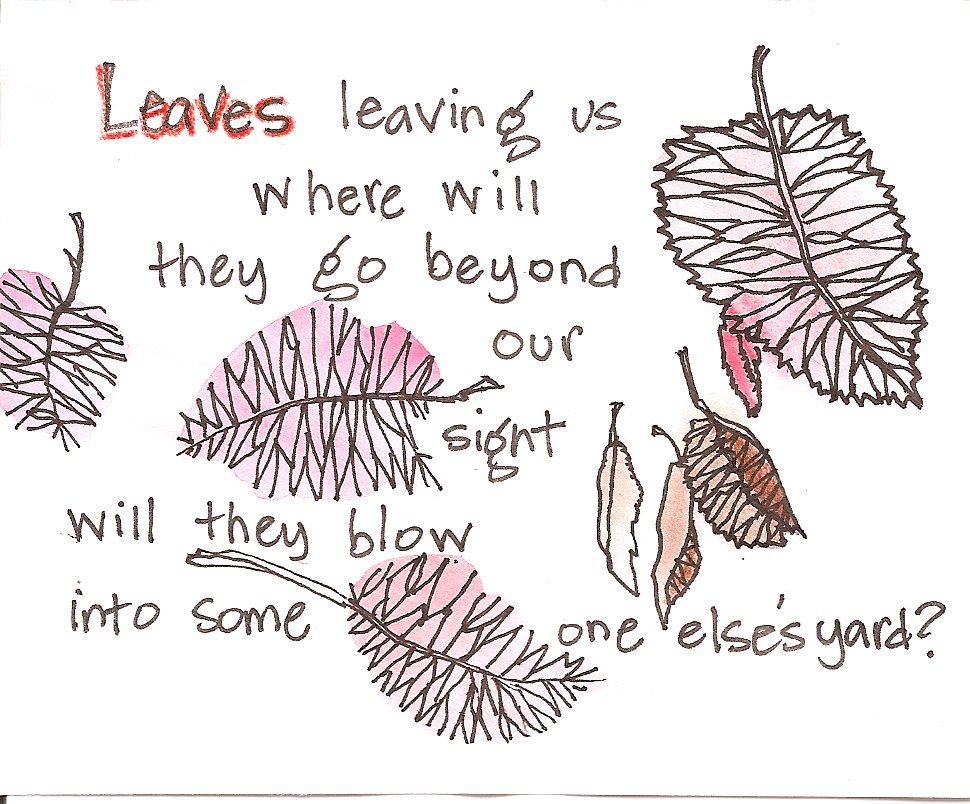 Leaves leaving us
where will
they go beyond
our
sight
will they blow
into some one else's yard?